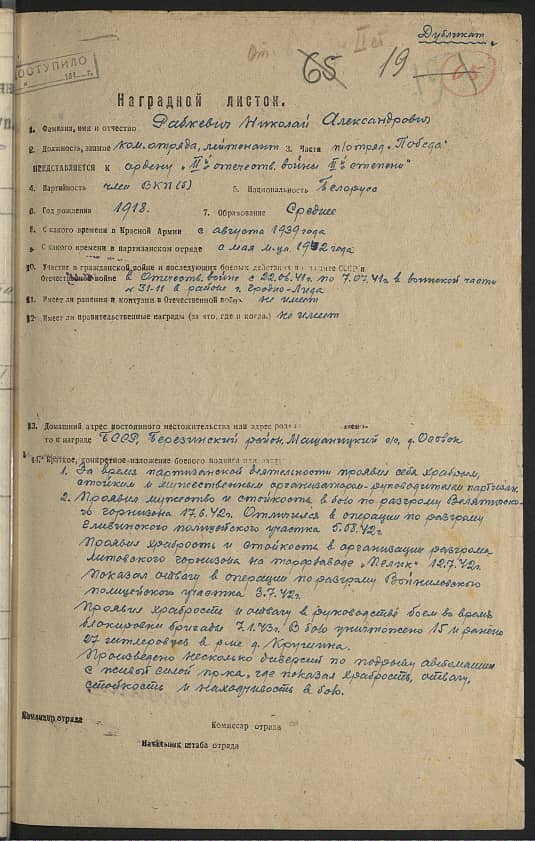 Дубликат
ПОСТУПИЛО
От
II ет
65 19 65
Наградной листок.
1. Фамилия, имя и отчество Рабкевич Николай Александрович
2. Должность, звание ком. отряда, лейтенант 3. Части п/отряд „Победа"
представляется к ордену „II й отечеств. войны II й степени"
4. Партийность член ВКП(б) 5. Национальность Белорусс
6. Год рождения 1918. 7. Образование Среднее
8. С какого времени в Красной Армии с августа 1939 года
9. С какого времени в партизанском отряде с мая м-ца 1942 года
10. Участие в гражданской войне и последующих боевых действиях по защите СССР и
Отечественной войне в Отечеств. войне с 22.06.41г. по 7.07.41г. в воинской части
н 31-11 в районе г. Гродно-Лида
11. Имеет ли ранения и контузии в Отечественной войне не имеет
12. Имеет ли правительственные награды (за что, где и когда.) не имеет
13. Домашний адрес постоянного местожительства или адрес
то к награде БССР, Березинский район, Мащаницкий с/с, д. Осовок
14. Краткое, конкретное изложение боевого подвига или
1. За время партизанской деятельности проявил себя храбрым,
стойким и мужественным организатором-руководителем партизан.
2. Проявил мужество и стойкость в бою по разгрому Велятичско-
го гарнизона 17.6.42г. Отличился в операции по разгрому
полицейского участка 5.08.42г
Проявил храбрость и стойкость в организации разгрома
литовского гарнизона на торфзаводе „Пелик" 12.7.42г.
Показал отвагу в операции по разгрому Войниловского
полицейского участка 3.7.42г.
Проявил храбрость и отвагу в руководстве боем во время
блокировки бригады 7.1.43г. В бою уничтожено 15 и ранено
27 гитлеровцев в р-не д. Кругилка.
Произведено несколько диверсий по подрыву автомашин
с живой силой пр-ка, где показал храбрость, отвагу,
стойкость и находчивость в бою.
Командир отряда
Комиссар отряда
Начальник штаба отряда